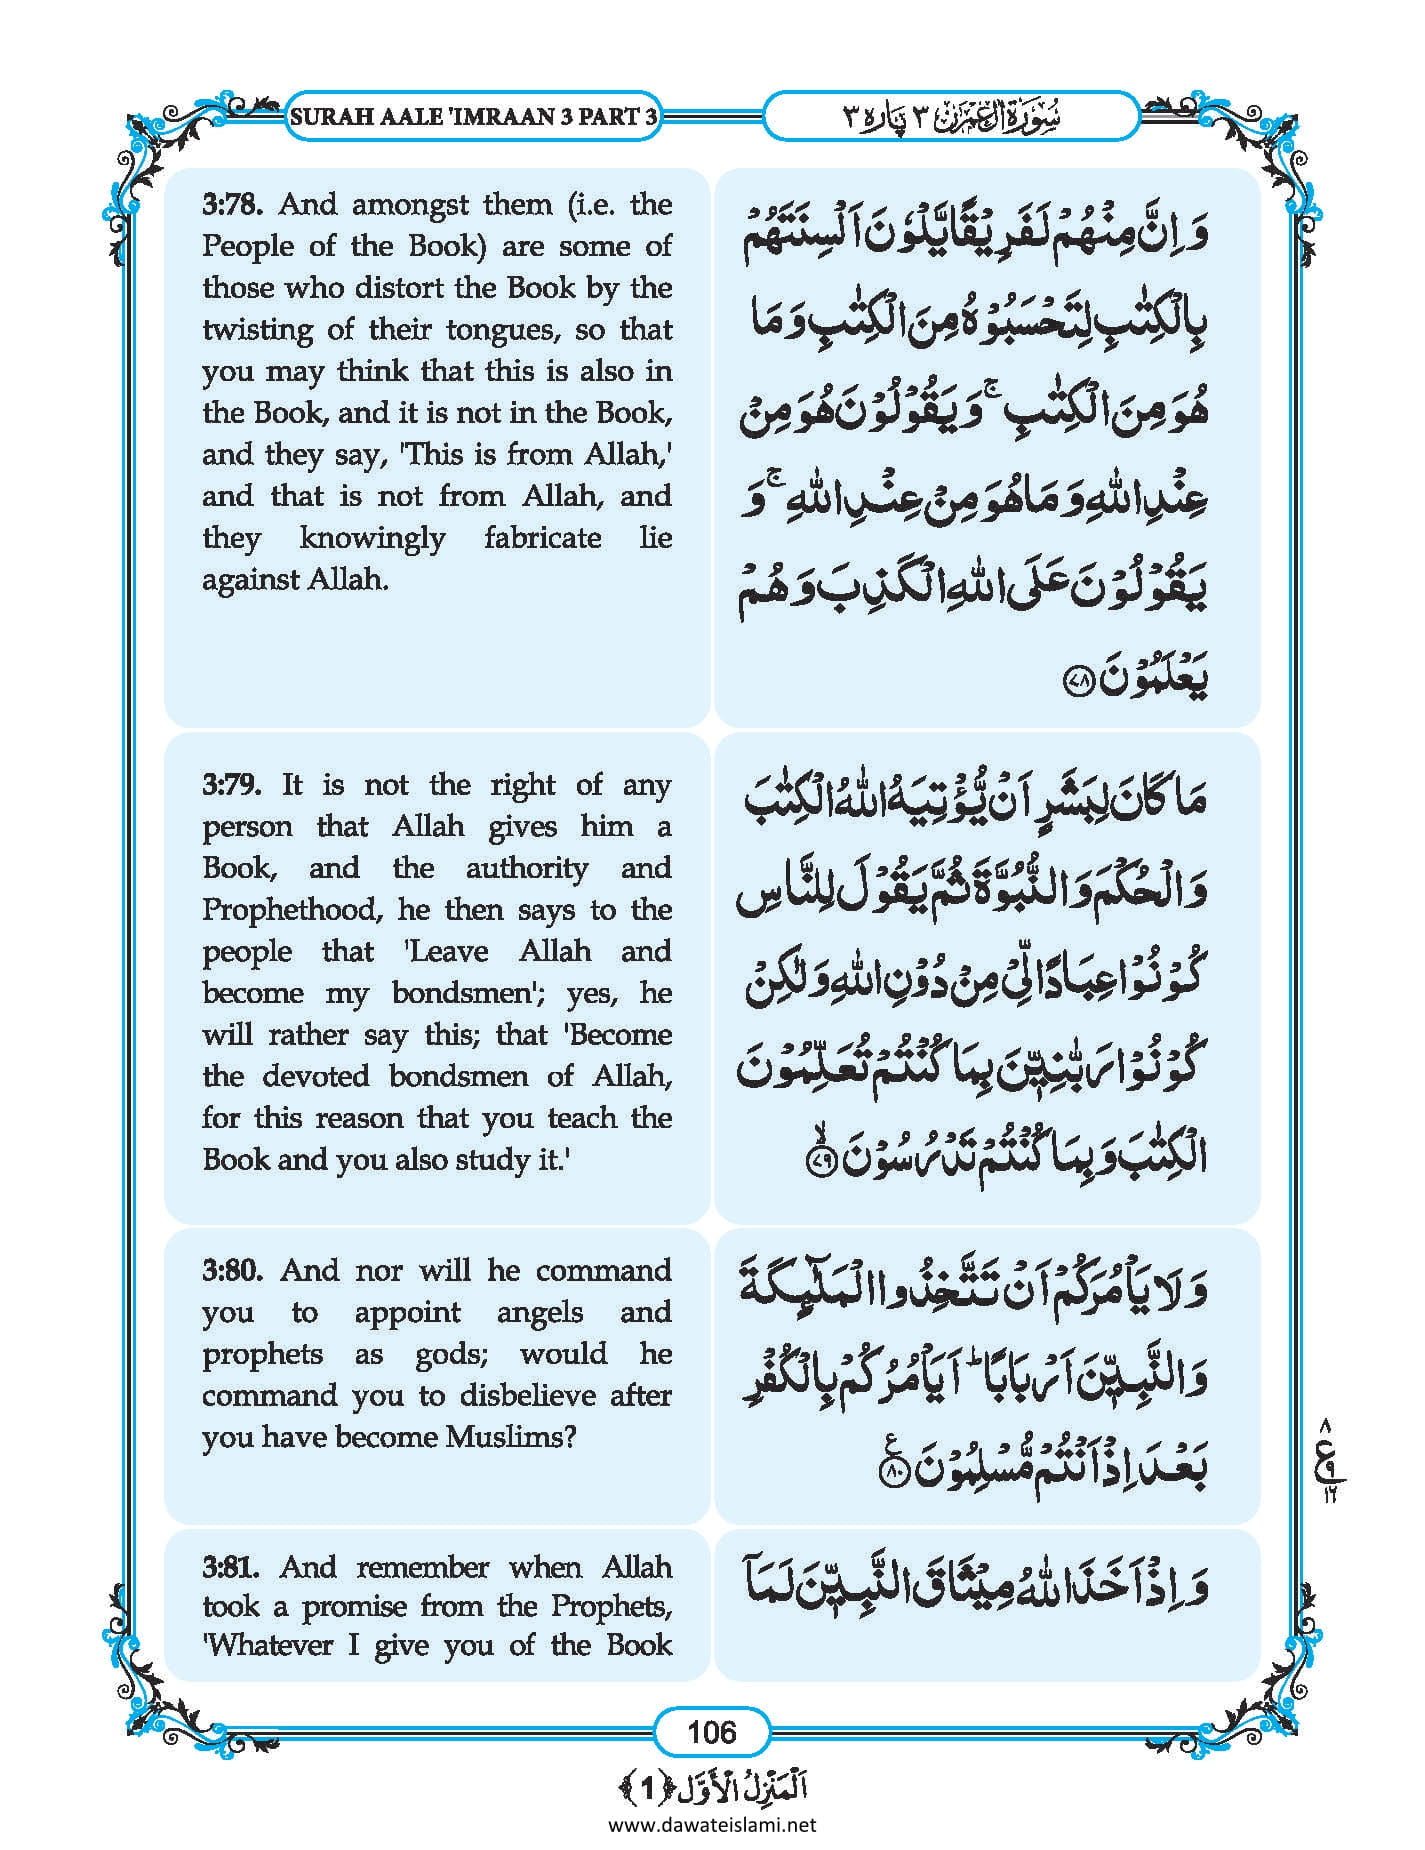 SURAH AALE 'IMRAAN 3 PART 3
سُوْرَةُ اٰلِ عِمْرٰن ٣ پَارہ ٣
3:78. And amongst them (i.e. the
People of the Book) are some of
those who distort the Book by the
twisting of their tongues, so that
you may think that this is also in
the Book, and it is not in the Book,
and they say, 'This is from Allah,'
and that is not from Allah, and
they knowingly fabricate lie
against Allah.
وَ اِنَّ مِنْهُمْ لَفَرِیْقًا یَّلْوٗنَ اَلْسِنَتَهُمْ
بِالْكِتٰبِ لِتَحْسَبُوْهُ مِنَ الْكِتٰبِ وَ مَا
هُوَ مِنَ الْكِتٰبِ ۚ وَ یَقُوْلُوْنَ هُوَ مِنْ
عِنْدِ اللّٰهِ وَ مَا هُوَ مِنْ عِنْدِ اللّٰهِ ۚ وَ
یَقُوْلُوْنَ عَلَى اللّٰهِ الْكَذِبَ وَ هُمْ
یَعْلَمُوْنَ ﴿۷۸﴾
3:79. It is not the right of any
person that Allah gives him a
Book, and the authority and
Prophethood, he then says to the
people that 'Leave Allah and
become my bondsmen'; yes, he
will rather say this; that 'Become
the devoted bondsmen of Allah,
for this reason that you teach the
Book and you also study it.'
مَا كَانَ لِبَشَرٍ اَنْ یُّؤْتِیَهُ اللّٰهُ الْكِتٰبَ
وَ الْحُكْمَ وَ النُّبُوَّةَ ثُمَّ یَقُوْلَ لِلنَّاسِ
كُوْنُوْا عِبَادًا لِّیْ مِنْ دُوْنِ اللّٰهِ وَ لٰكِنْ
كُوْنُوْا رَبّٰنِیّٖنَ بِمَا كُنْتُمْ تُعَلِّمُوْنَ
الْكِتٰبَ وَ بِمَا كُنْتُمْ تَدْرُسُوْنَ ۙ﴿۷۹﴾
3:80. And nor will he command
you to appoint angels and
prophets as gods; would he
command you to disbelieve after
you have become Muslims?
وَ لَا یَاْمُرَكُمْ اَنْ تَتَّخِذُوا الْمَلٰٓىِٕكَةَ
وَ النَّبِیّٖنَ اَرْبَابًا ؕ اَیَاْمُرُكُمْ بِالْكُفْرِ
بَعْدَ اِذْ اَنْتُمْ مُّسْلِمُوْنَ ﴿۸۰﴾ ع
٨
ع ٩
١٦
3:81. And remember when Allah
took a promise from the Prophets,
'Whatever I give you of the Book
وَ اِذْ اَخَذَ اللّٰهُ مِیْثَاقَ النَّبِیّٖنَ لَمَاۤ
106
اَلْمَنْزِلُ الْاَوَّل ﴿1﴾
www.dawateislami.net